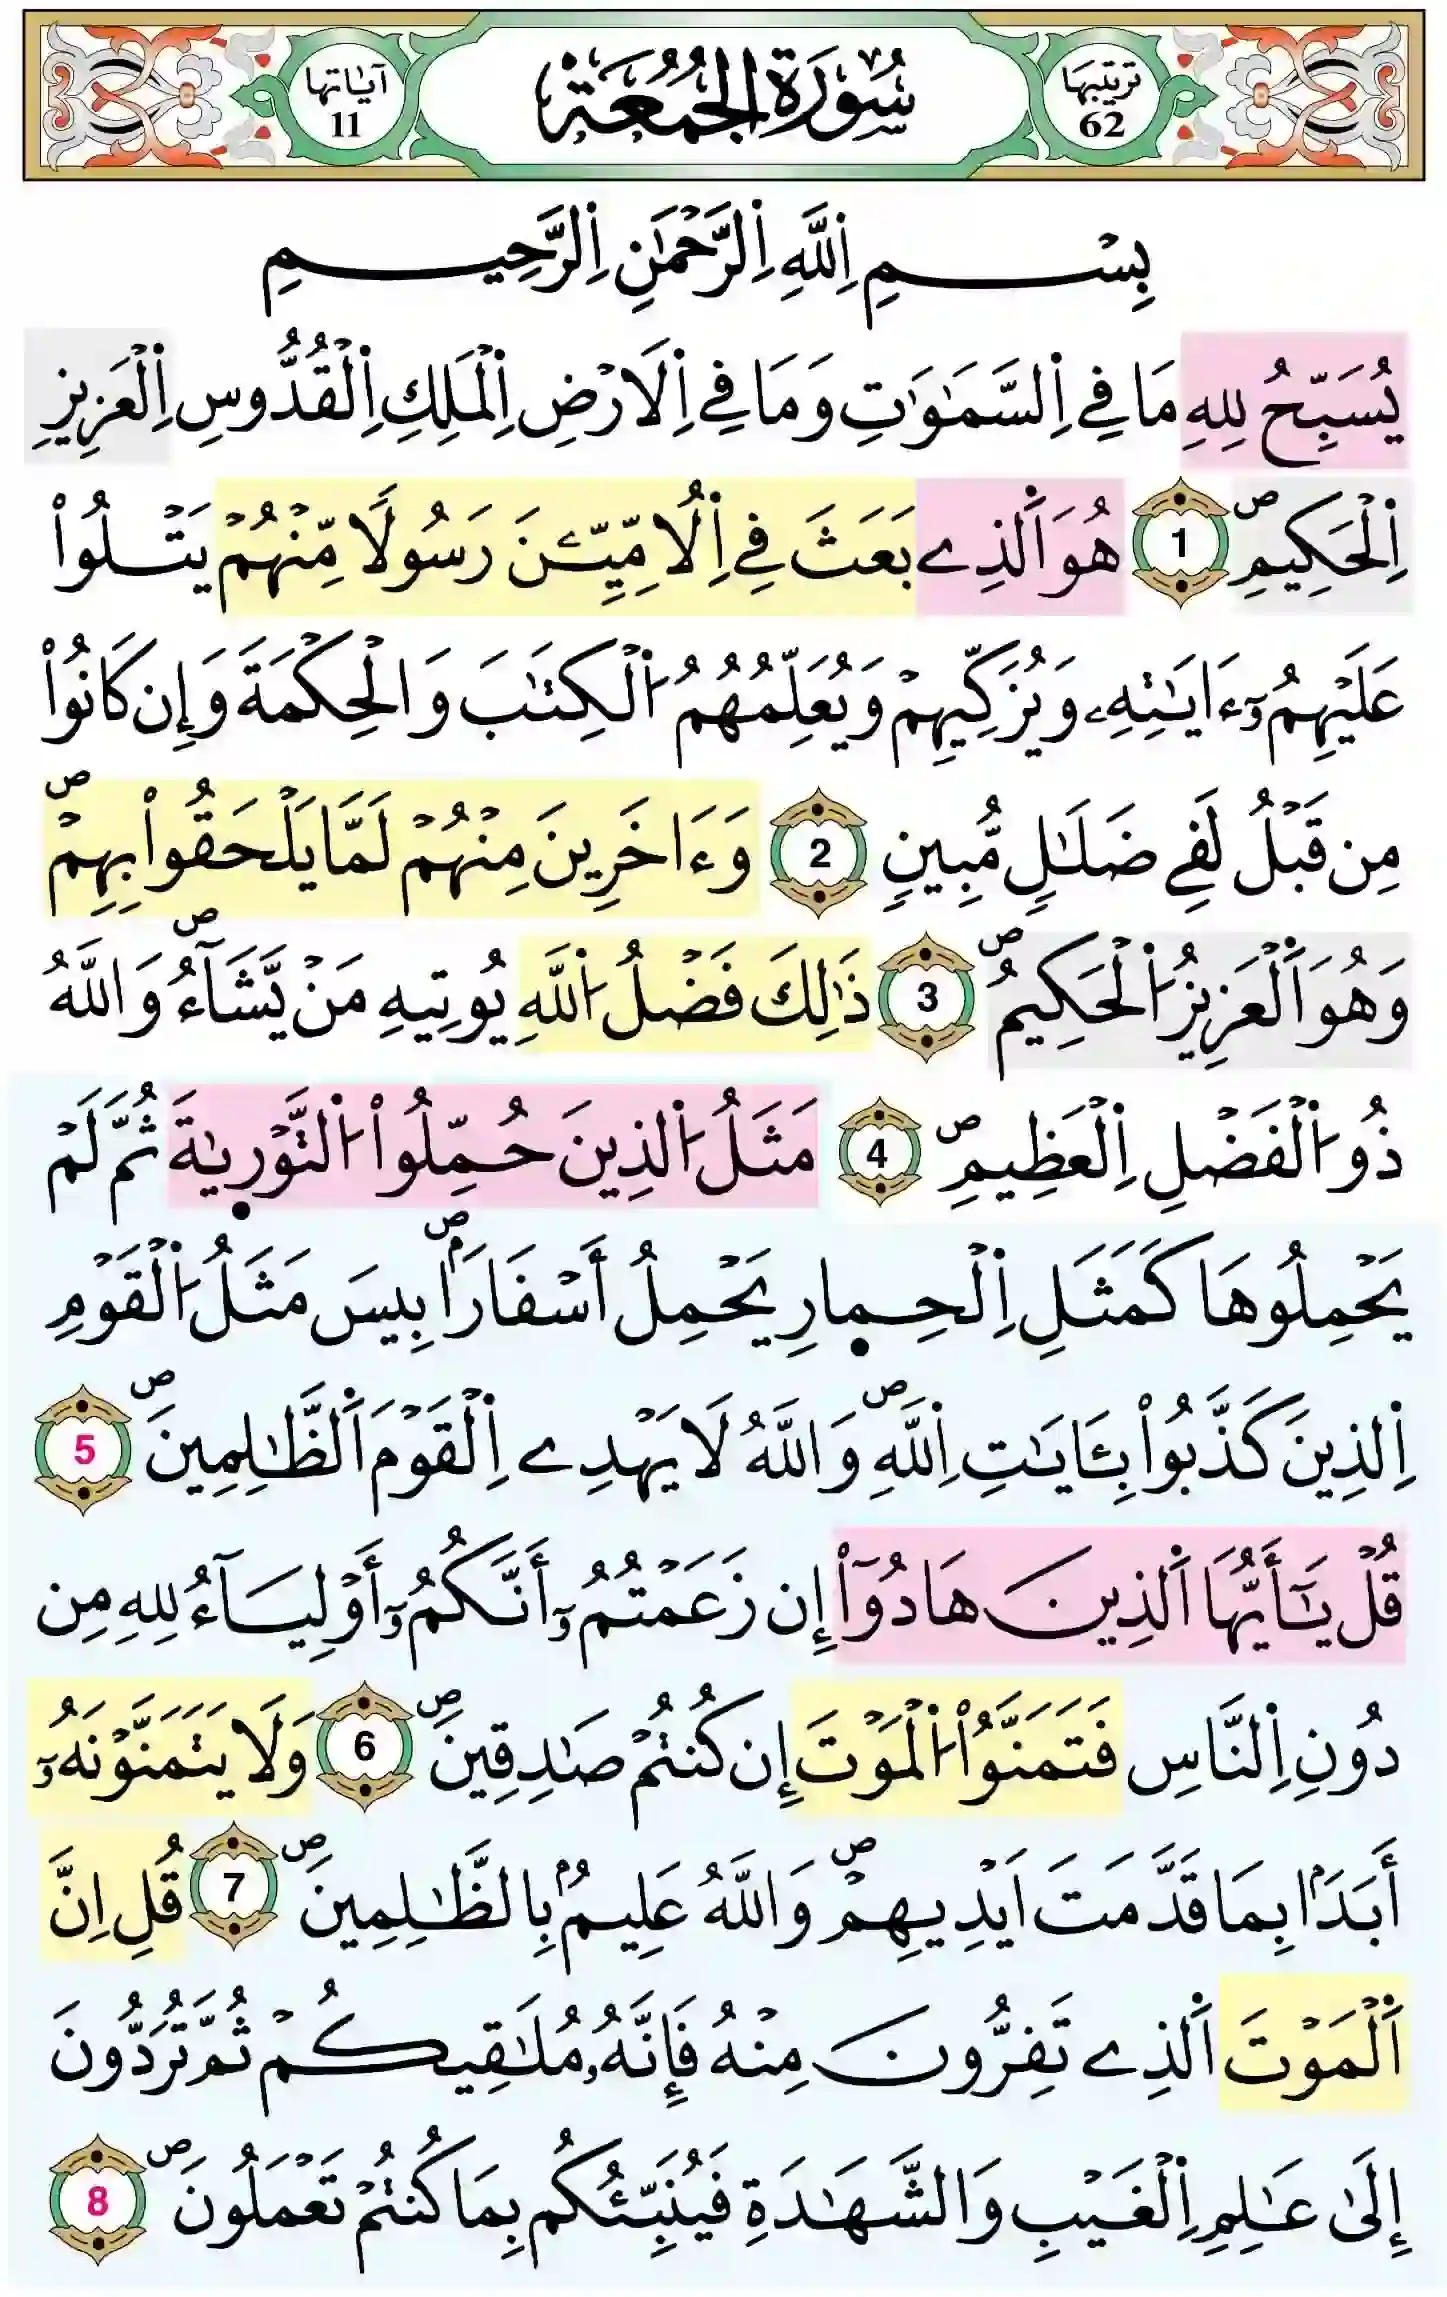 ترتيبها 62 سُورَةُ الجُمُعَة آياتها 11
بِسْمِ اِللَّهِ اِلرَّحْمَٰنِ اِلرَّحِيمِ
يُسَبِّحُ لِلهِ مَا فِے اِلسَّمَٰوَٰتِ وَمَا فِے اِلَارْضِ اِلْمَلِكِ اِلْقُدُّوسِ اِلْعَزِيزِ
اِلْحَكِيمِۖ 1 هُوَ اَلذِے بَعَثَ فِے اِلُامِّيِّـۧنَ رَسُولًا مِّنْهُمْ يَتْلُواْ
عَلَيْهِمُۥٓ ءَايَٰتِهِۦ وَيُزَكِّيهِمْ وَيُعَلِّمُهُمُ اُلْكِتَٰبَ وَالْحِكْمَةَ وَإِن كَانُواْ
مِن قَبْلُ لَفِے ضَلَٰلٍ مُّبِينٍ 2 وَءَاخَرِينَ مِنْهُمْ لَمَّا يَلْحَقُواْ بِهِمْۖ
وَهُوَ اَلْعَزِيزُ اُلْحَكِيمُۖ 3 ذَٰلِكَ فَضْلُ اُللَّهِ يُوتِيهِ مَنْ يَّشَآءُۖ وَاللَّهُ
ذُو اُلْفَضْلِ اِلْعَظِيمِۖ 4 مَثَلُ اُلذِينَ حُمِّلُواْ اُلتَّوْر۪ىٰةَ ثُمَّ لَمْ
يَحْمِلُوهَا كَمَثَلِ اِلْحِم۪ارِ يَحْمِلُ أَسْفَارَاۢۖ بِيسَ مَثَلُ اُلْقَوْمِ
اِلذِينَ كَذَّبُواْ بِـَٔايَٰتِ اِللَّهِۖ وَاللَّهُ لَا يَهْدِے اِلْقَوْمَ اَلظَّٰلِمِينَۖ 5
قُلْ يَٰٓأَيُّهَا اَلذِينَ هَادُوٓاْ إِن زَعَمْتُمُۥٓ أَنَّكُمُۥٓ أَوْلِيَآءُ لِلهِ مِن
دُونِ اِلنَّاسِ فَتَمَنَّوُاْ اُلْمَوْتَ إِن كُنتُمْ صَٰدِقِينَۖ 6 وَلَا يَتَمَنَّوْنَهُۥٓ
أَبَدَاۢ بِمَا قَدَّمَتَ اَيْدِيهِمْۖ وَاللَّهُ عَلِيمُۢ بِالظَّٰلِمِينَۖ 7 قُلِ اِنَّ
اَلْمَوْتَ اَلذِے تَفِرُّونَ مِنْهُ فَإِنَّهُۥ مُلَٰقِيكُمْ ثُمَّ تُرَدُّونَ
إِلَىٰ عَٰلِمِ اِلْغَيْبِ وَالشَّهَٰدَةِ فَيُنَبِّئُكُم بِمَا كُنتُمْ تَعْمَلُونَۖ 8